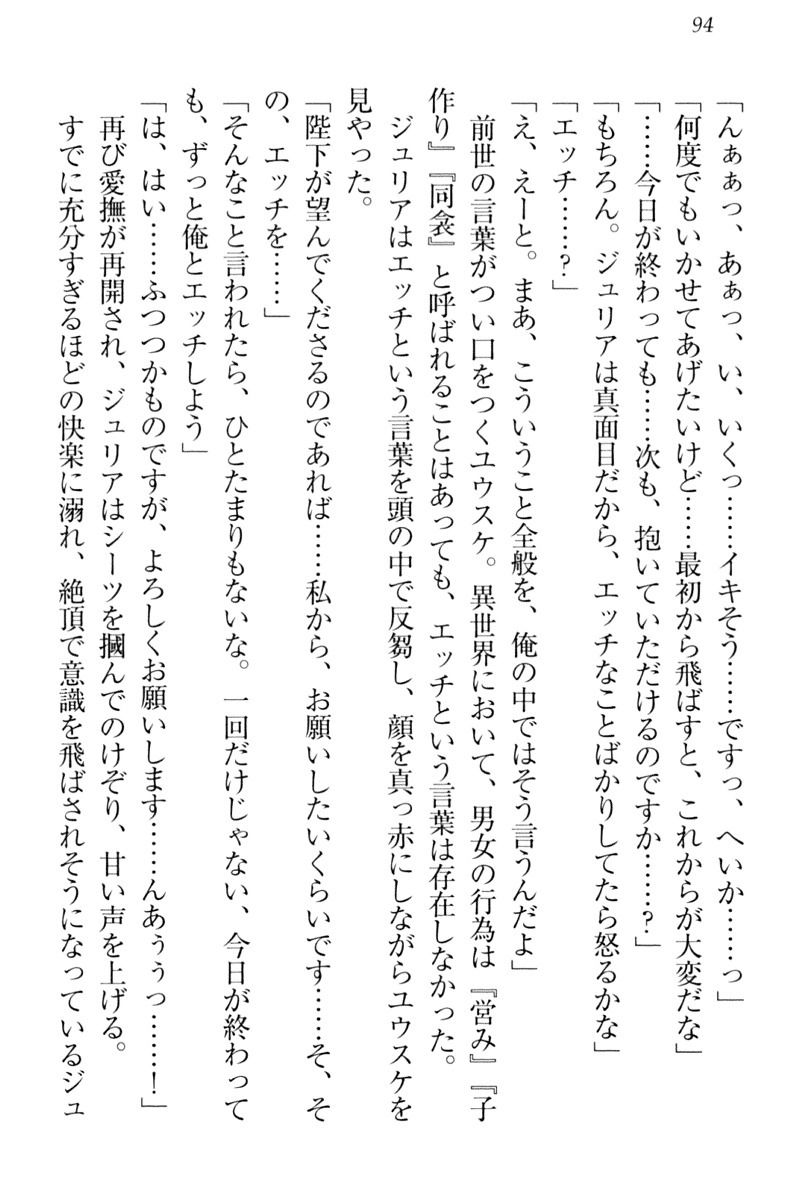 94
「んぁぁっ、あぁっ、い、いくっ……イキそう……ですっ、へいか……っ」
「何度でもいかせてあげたいけど……最初から飛ばすと、これからが大変だな」
「……今日が終わっても……次も、抱いていただけるのですか……？」
「もちろん。ジュリアは真面目だから、エッチなことばかりしてたら怒るかな」
「エッチ……？」
「え、えーと。まあ、こういうこと全般を、俺の中ではそう言うんだよ」
前世の言葉がつい口をつくユウスケ。異世界において、男女の行為は『営み』『子
作り』『同衾』と呼ばれることはあっても、エッチという言葉は存在しなかった。
ジュリアはエッチという言葉を頭の中で反芻し、顔を真っ赤にしながらユウスケを
見やった。
「陛下が望んでくださるのであれば……私から、お願いしたいくらいです……そ、そ
の、エッチを……」
「そんなこと言われたら、ひとたまりもないな。一回だけじゃない、今日が終わって
も、ずっと俺とエッチしよう」
「は、はい……ふつつかものですが、よろしくお願いします……んあぅぅっ……！」
再び愛撫が再開され、ジュリアはシーツを摑んでのけぞり、甘い声を上げる。
すでに充分すぎるほどの快楽に溺れ、絶頂で意識を飛ばされそうになっているジュ